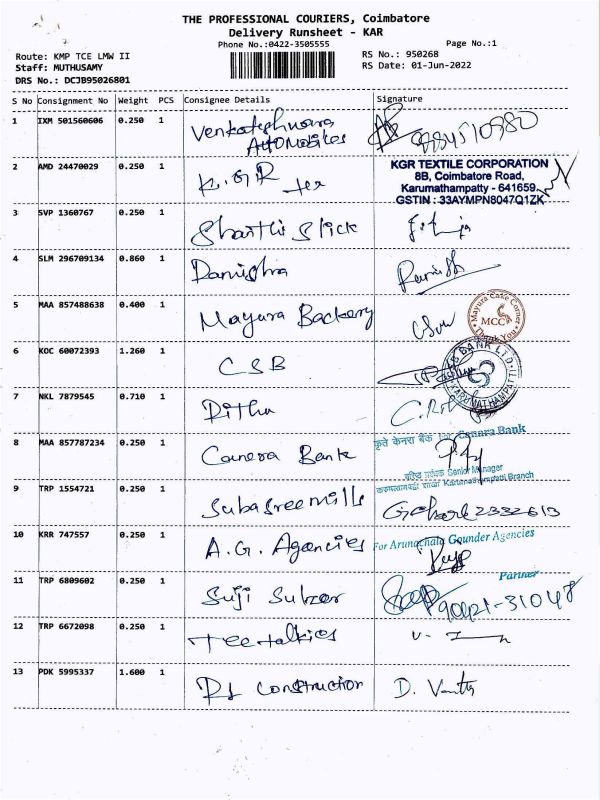 THE PROFESSIONAL COURIERS, Coimbatore
Delivery Runsheet - KAR
Phone No.:0422-3505555
Page No.:1
Route: KMP TCE LMW II
RS No.: 950268
Staff: MUTHUSAMY
RS Date: 01-Jun-2022
DRS No.: DCJB95026801
S No Consignment No Weight PCS Consignee Details Signature
1 IXM 501560606 0.250 1 Venkateshwara
Automobiles
2 AMD 24470029 0.250 1 K.G.R tex
KGR TEXTILE CORPORATION
8B, Coimbatore Road,
Karumathampatty - 641659.
GSTIN : 33AYMPN8047Q1ZK
3 SVP 1360767 0.250 1 Shanthi Slick
4 SLM 296709134 0.860 1 Danisha
5 MAA 857488638 0.400 1 Mayura Backery
Mayura Cake Corner
MCC
Thank You
6 KOC 60072393 1.260 1 CSB
BANK LTD
7 NKL 7879545 0.710 1 Dithu
8 MAA 857787234 0.250 1 Canera Bank
कृते केनरा बैंक For Canara Bank
वरिष्ठ प्रबंधक Senior Manager
Karumathampatti Branch
9 TRP 1554721 0.250 1 Subasree mills 2332613
10 KRR 747557 0.250 1 A.G. Agencies
For Arunachala Gounder Agencies
Partner
11 TRP 6809602 0.250 1 Suji Sulzer 90421-31048
12 TRP 6672098 0.250 1 Teetalkies
13 PDK 5995337 1.600 1 construction